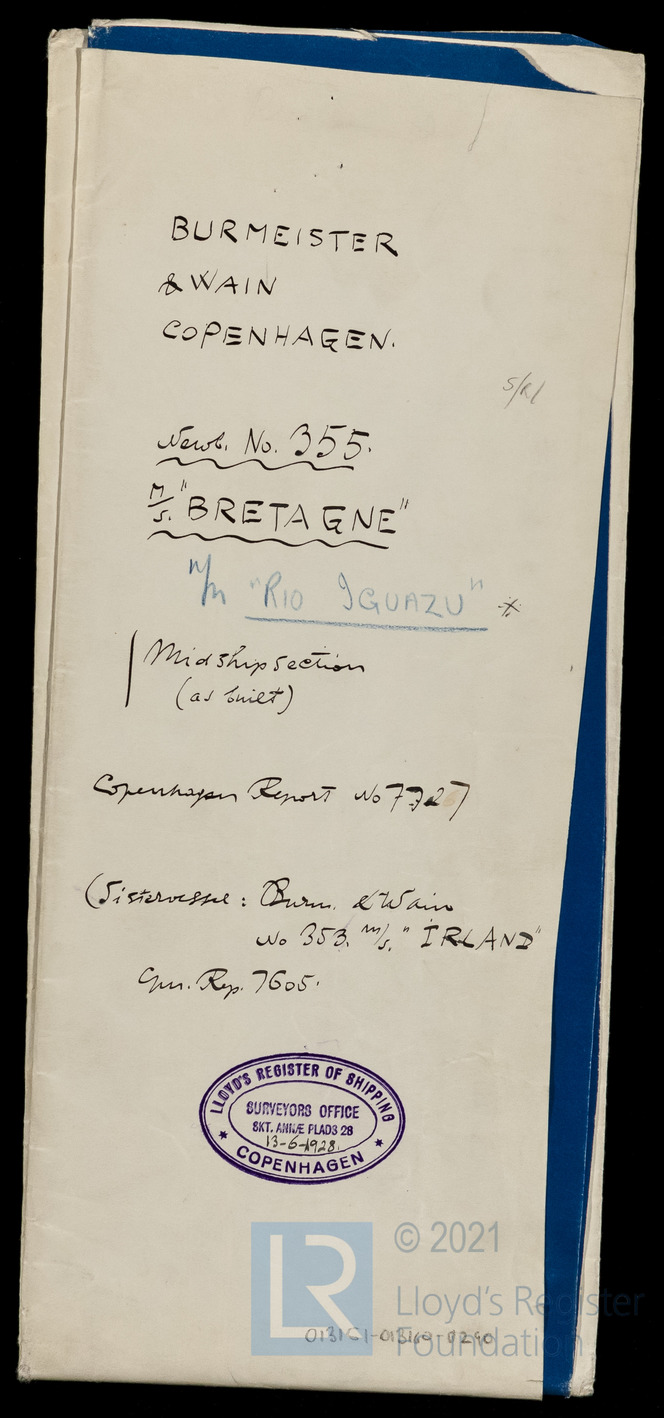 BURMEISTER
& WAIN
COPENHAGEN.
S/R/
Newb. No. 355.
M/S. "BRETAGNE"
"RIO IGUAZU" *
Midshipsection
(as built)
Copenhagen Report No 7727
(Sistervessel: Burm. & Wain
No 353. M/S. "IRLAND"
Rep. 7605.
LLOYD'S REGISTER OF SHIPPING
SURVEYORS OFFICE
SKT. ANNÆ PLADS 28
13-6-1928.
* COPENHAGEN *
LR
© 2021
Lloyd's Register
Foundation